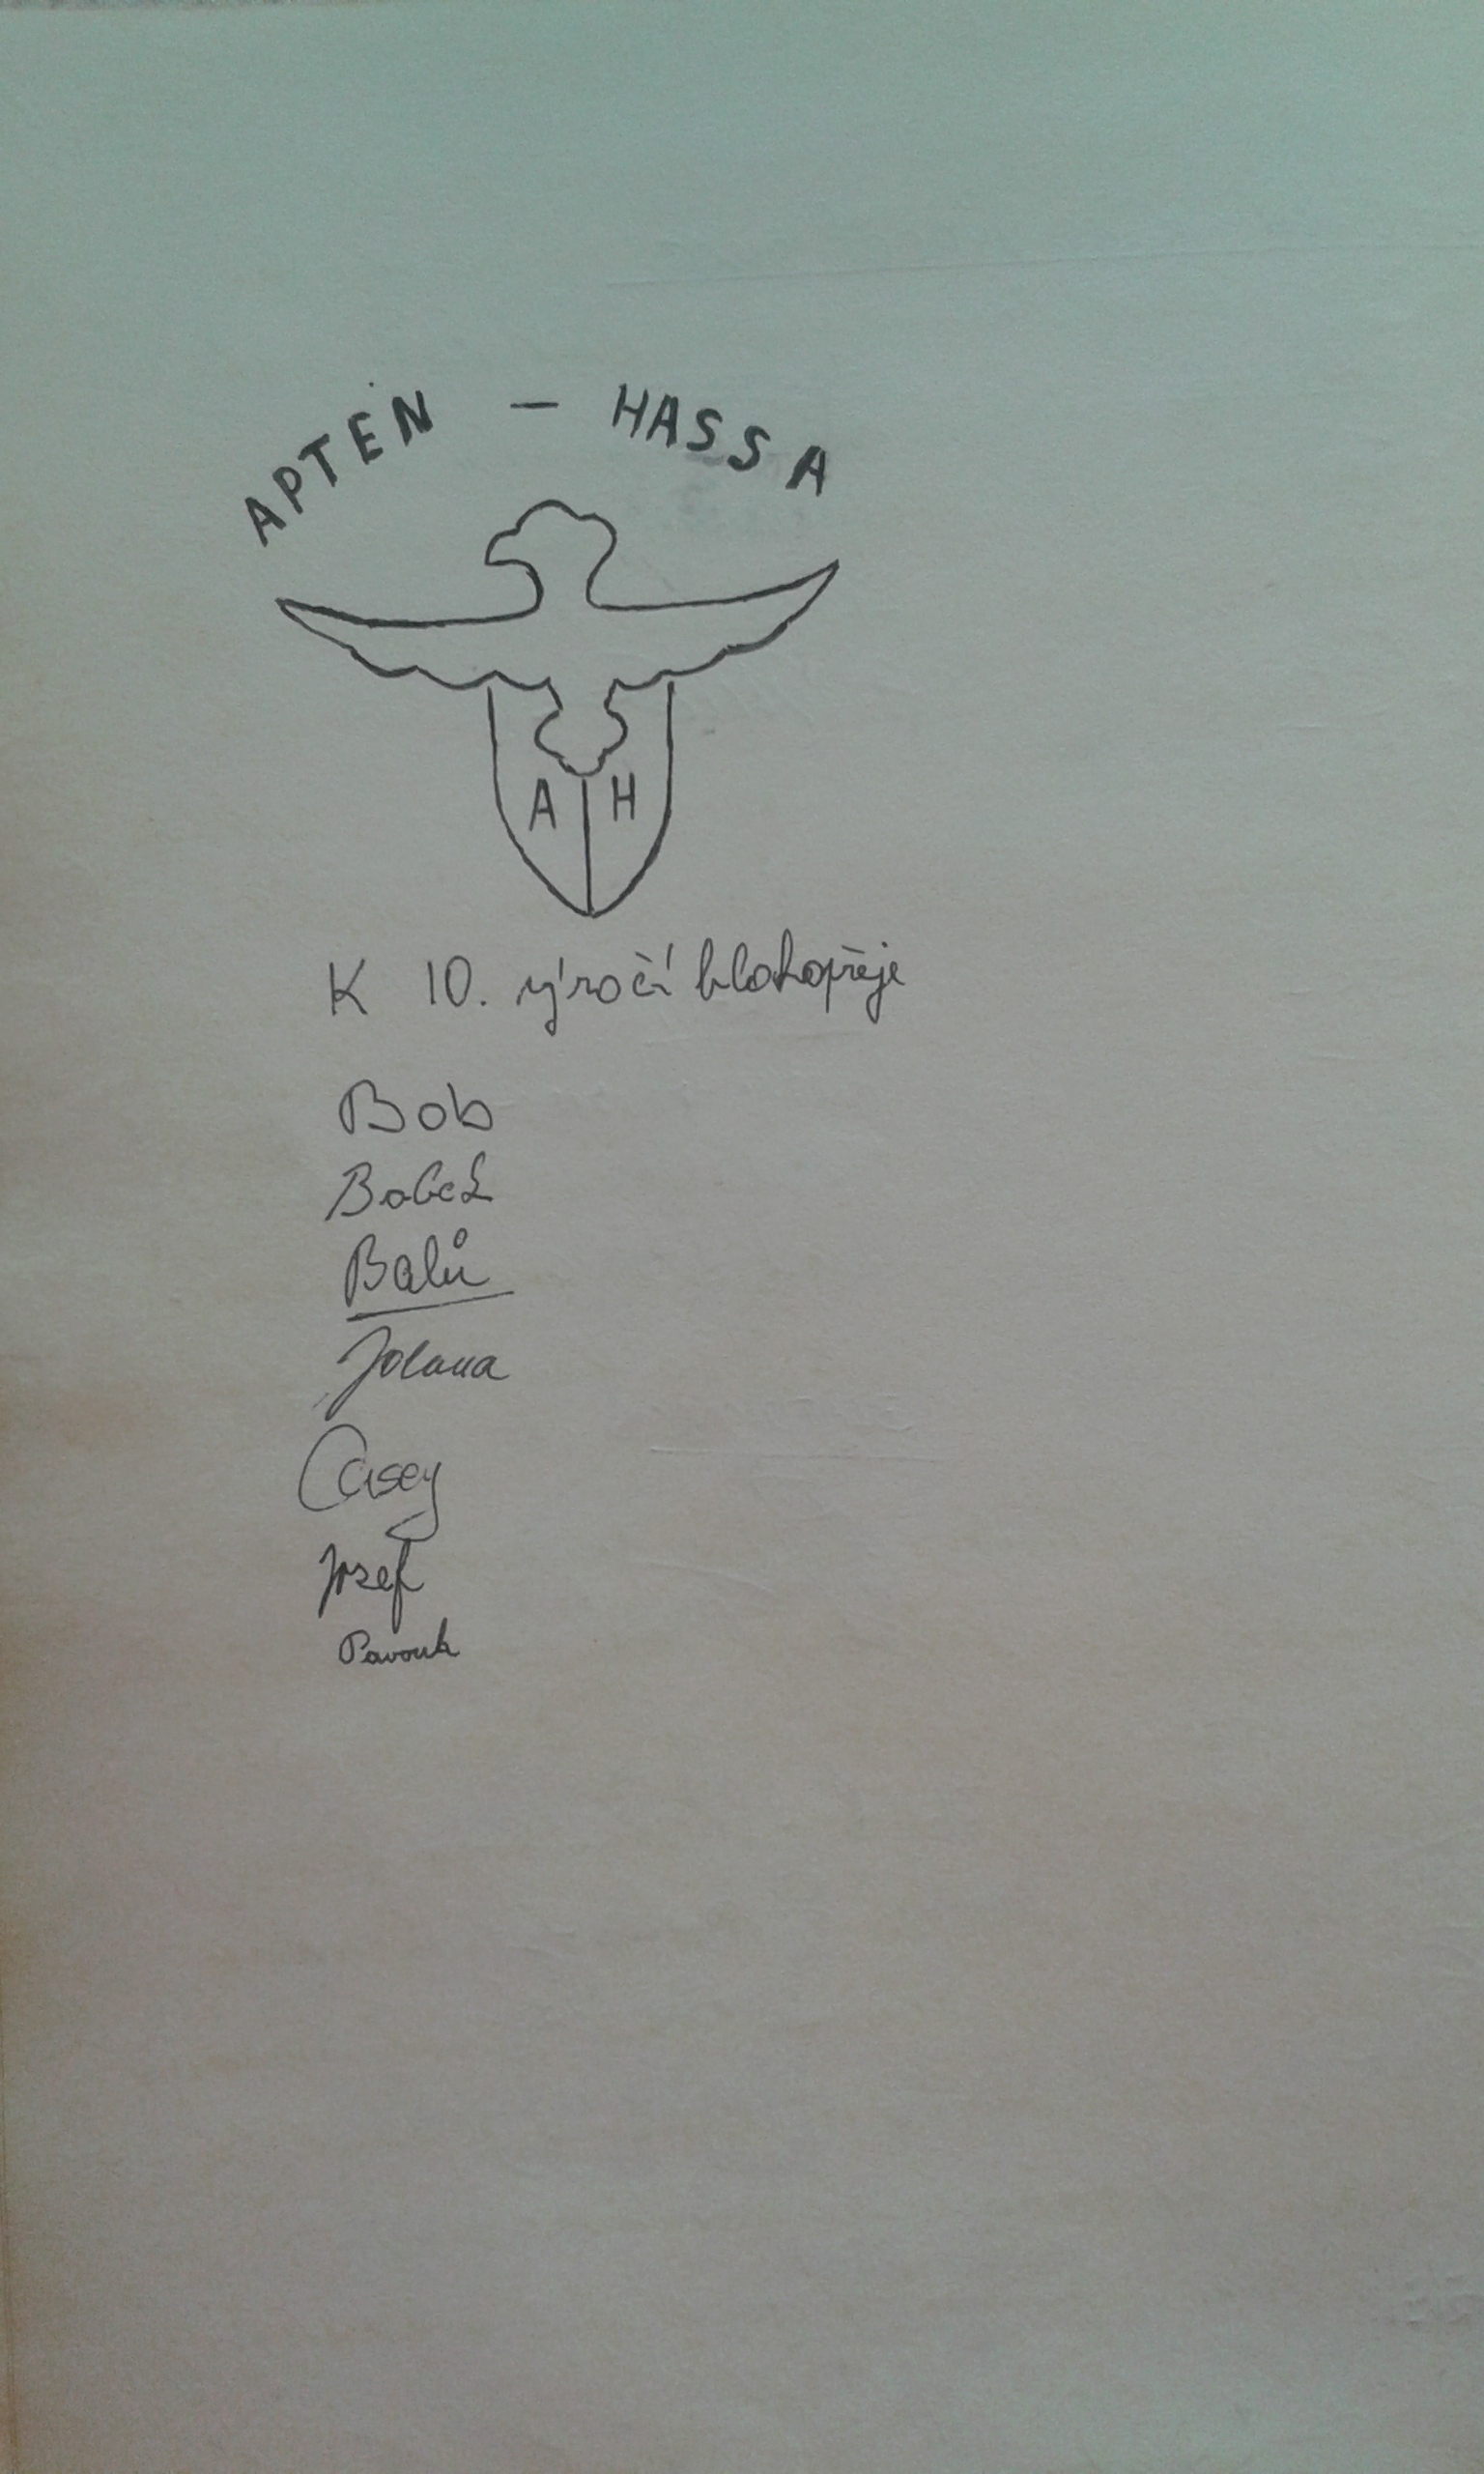 APTEN - HASSA
A H
K 10. výročí blahopřeje
Bob
Bobek
Balů
Jolana
Casey
Josef
Pavouk